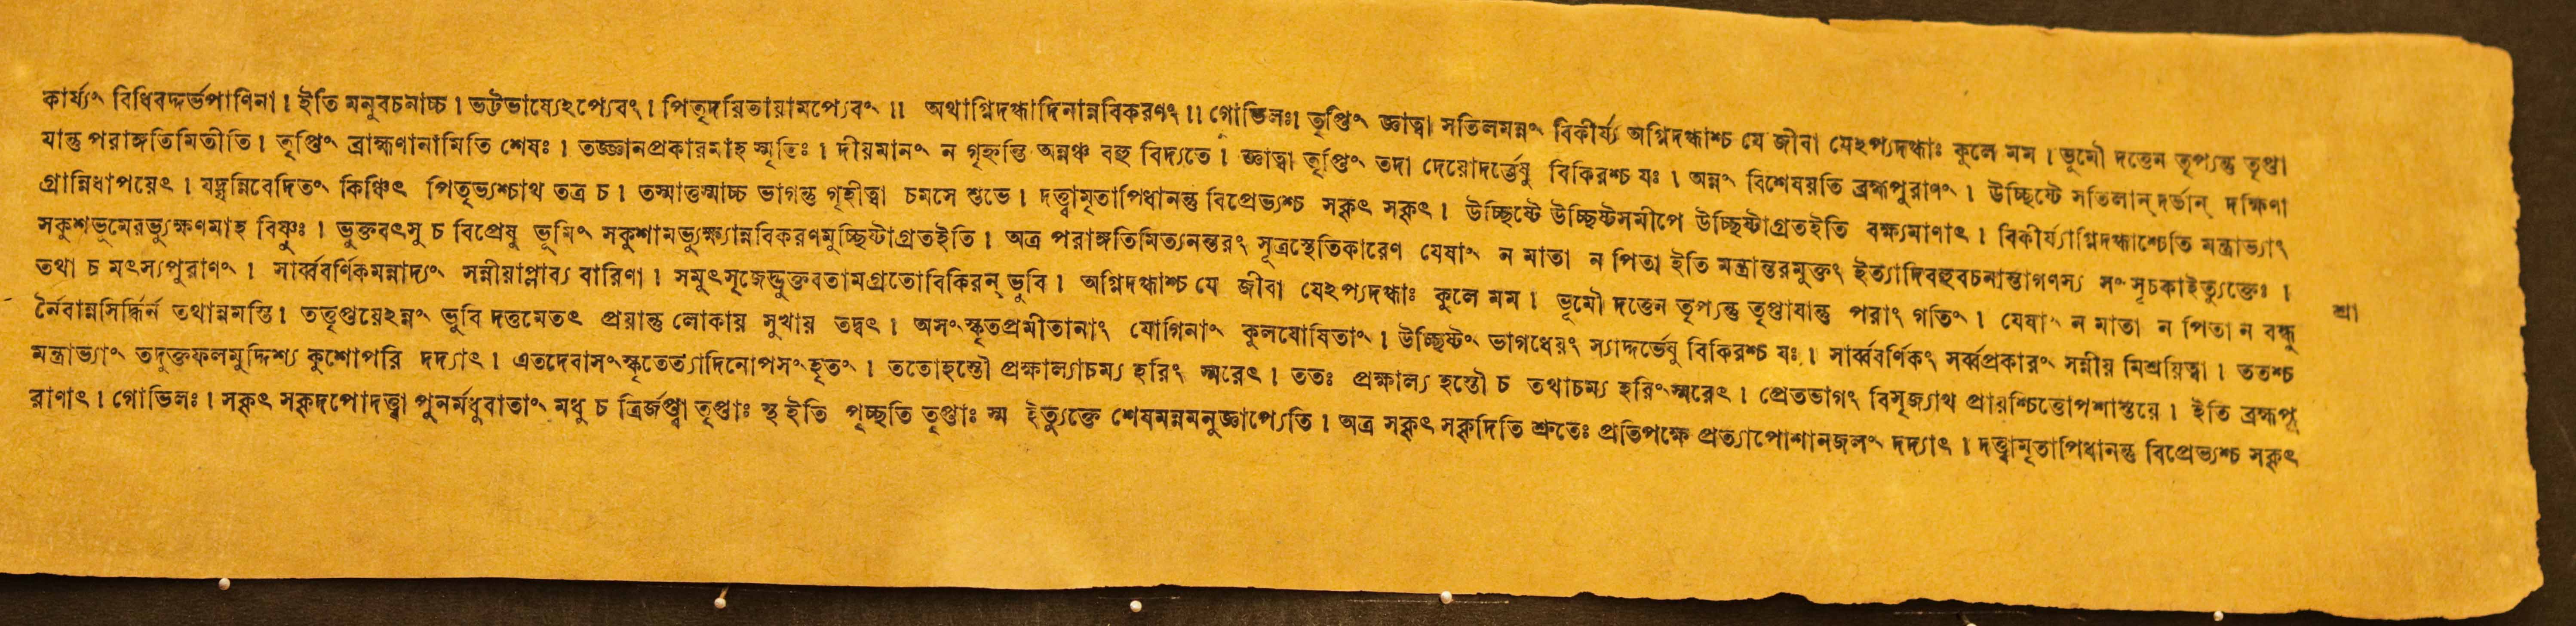 কার্য্যং বিধিবদ্দর্ভপাণিনা। ইতি মনুবচনাচ্চ। ভট্টভাষ্যেঽপ্যেবং। পিতৃদয়িতায়ামপ্যেবং॥ অথাগ্নিদগ্ধাদিনান্নবিকরণং॥ গোভিলঃ। তৃপ্তিং জ্ঞাত্বা সতিলমন্নং বিকীর্য্য অগ্নিদগ্ধাশ্চ যে জীবা যেঽপ্যদগ্ধাঃ কুলে মম। ভুমৌ দত্তেন তৃপ্যন্তু তৃপ্তা
যান্তু পরাঙ্গতিমিতীতি। তৃপ্তিং ব্রাহ্মণানামিতি শেষঃ। তজ্জ্ঞানপ্রকারমাহ স্মৃতিঃ। দীয়মানং ন গৃহ্নন্তি অন্নঞ্চ বহু বিদ্যতে। জ্ঞাত্বা তৃপ্তিং তদা দেয়োদর্ভেষু বিকিরশ্চ যঃ। অন্নং বিশেষয়তি ব্রহ্মপুরাণং। উচ্ছিষ্টে সতিলান্ দর্ভান্ দক্ষিণা
গ্রান্নিধাপয়েৎ। যদ্যন্নিবেদিতং কিঞ্চিৎ পিতৃভ্যশ্চাথ তত্র চ। তস্মাত্তস্মাচ্চ ভাগন্তু গৃহীত্বা চমসে শুভে। দত্ত্বামৃতাপিধানন্তু বিপ্রেভ্যশ্চ সকৃৎ সকৃৎ। উচ্ছিষ্টে উচ্ছিষ্টসমীপে উচ্ছিষ্টাগ্রতইতি বক্ষ্যমাণাৎ। বিকীর্য্যাগ্নিদগ্ধাশ্চেতি মন্ত্রাভ্যাং
সকুশভূমেরভ্যুক্ষণমাহ বিষ্ণুঃ। ভুক্তবৎসু চ বিপ্রেষু ভূমিং সকুশামভ্যুক্ষ্যান্নবিকরণমুচ্ছিষ্টাগ্রতইতি। অত্র পরাঙ্গতিমিত্যনন্তরং সূত্রস্থেতিকারেণ যেষাং ন মাতা ন পিতা ইতি মন্ত্রান্তরমুক্তং ইত্যাদিবহুবচনান্তাগণস্য সং সূচকাইত্যুক্তেঃ।
তথা চ মৎস্যপুরাণং। সার্ব্ববর্ণিকমন্নাদ্যং সন্নীয়াপ্লাব্য বারিণা। সমুৎসৃজেদ্ভুক্তবতামগ্রতোবিকিরন্ ভুবি। অগ্নিদগ্ধাশ্চ যে জীবা যেঽপ্যদগ্ধাঃ কুলে মম। ভূমৌ দত্তেন তৃপ্যন্তু তৃপ্তাযান্তু পরাং গতিং। যেষাং ন মাতা ন পিতা ন বন্ধু
শ্রা
র্নৈবান্নসির্দ্ধির্ন তথান্নমস্তি। তত্তৃপ্তয়েঽন্নং ভুবি দত্তমেতৎ প্রয়ান্তু লোকায় সুখায় তদ্বৎ। অসংস্কৃতপ্রমীতানাং যোগিনাং কুলযোষিতাং। উচ্ছিষ্টং ভাগধেয়ং স্যাদ্দর্ভেষু বিকিরশ্চ যঃ। সার্ব্ববর্ণিকং সর্ব্বপ্রকারং সন্নীয় মিশ্রয়িত্বা। ততশ্চ
মন্ত্রাভ্যাং তদুক্তফলমুদ্দিশ্য কুশোপরি দদ্যাৎ। এতদেবাসংস্কৃতেত্যাদিনোপসংহৃতং। ততোহস্তৌ প্রক্ষাল্যাচম্য হরিং স্মরেৎ। ততঃ প্রক্ষাল্য হস্তৌ চ তথাচম্য হরিংস্মরেৎ। প্রেতভাগং বিসৃজ্যাথ প্রায়শ্চিত্তোপশান্তয়ে। ইতি ব্রহ্মপু
রাণাৎ। গোভিলঃ। সকৃৎ সকৃদপোদত্ত্বা পুনর্মধুবাতাং মধু চ ত্রির্জপ্ত্বা তৃপ্তাঃ স্থ ইতি পৃচ্ছতি তৃপ্তাঃ স্ম ইত্যুক্তে শেষমন্নমনুজ্ঞাপ্যেতি। অত্র সকৃৎ সকৃদিতি শ্রুতেঃ প্রতিপক্ষে প্রত্যাপোশানজলং দদ্যাৎ। দত্ত্বামৃতাপিধানন্তু বিপ্রেভ্যশ্চ সকৃৎ